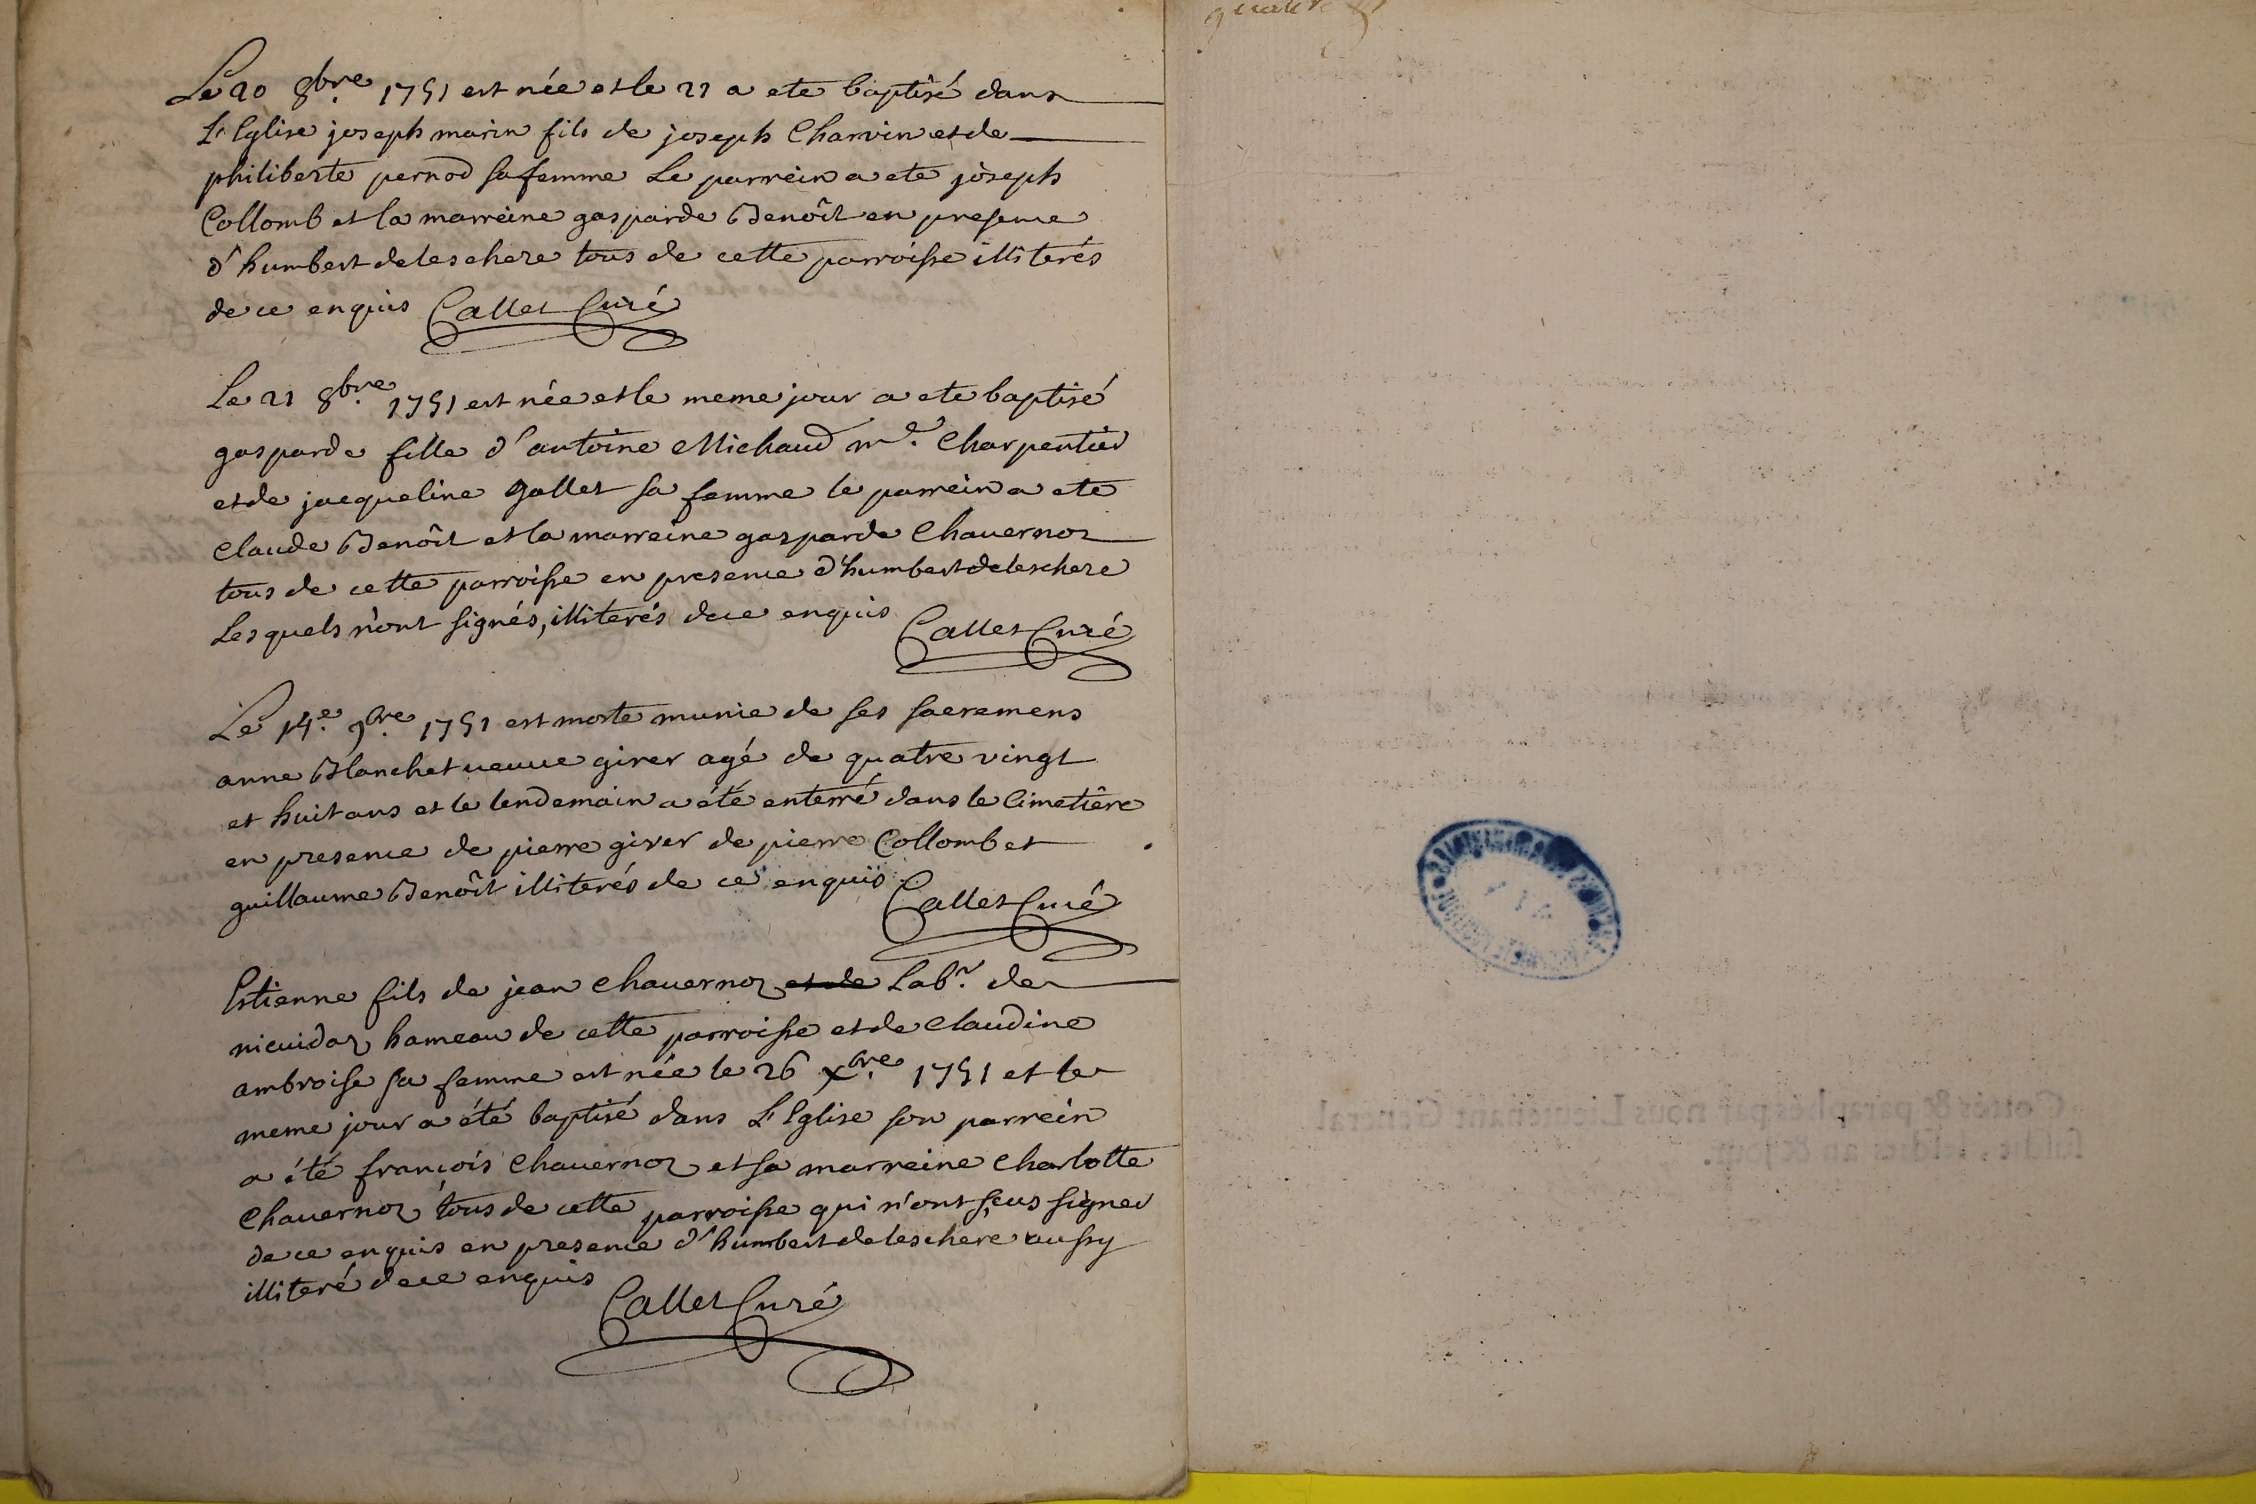 Le 20 8bre. 1751 est née et le 21 a ete baptisé dans
L'Eglise joseph marin fils de joseph Charvin et de
philiberte pernod sa femme Le parrein a ete joseph
Collomb et la marreine gasparde Benôit en presence
d'humbert deleschere tous de cette parroisse illiterés
de ce enquis Callet Curé
Le 21 8bre. 1751 est née et le meme jour a ete baptisé
gasparde fille d'antoine Michaud me. Charpentier
et de jacqueline gallet sa femme le parrein a ete
Claude Benôit et la marreine gasparde Chavernoz
tous de cette parroisse en presence d'humbert deleschere
Lesquels n'ont signés, illiterés de ce enquis Callet Curé
Le 14e. 9bre. 1751 est morte munie de ses sacremens
anne Blanchet veuve girer agé de quatre vingt
et huit ans et le lendemain a été enterré dans le Cimetière
en presence de pierre girer de pierre Collomb et
guillaume Benôit illiterés de ce enquis Callet Curé
Estienne fils de jean Chavernoz et de Labr. de
hameau de cette parroisse et de Claudine
ambroise sa femme est née le 26 xbre. 1751 et le
meme jour a été baptisé dans L'Eglise son parrein
a été françois Chavernoz et sa marreine Charlotte
Chavernoz tous de cette parroisse qui n'ont sçus signer
de ce enquis en presence d'humbert deleschere aussy
illiteré de ce enquis Callet Curé
Cottés & paraphés par nous Lieutenant General
susdit, lesdits an & jour.